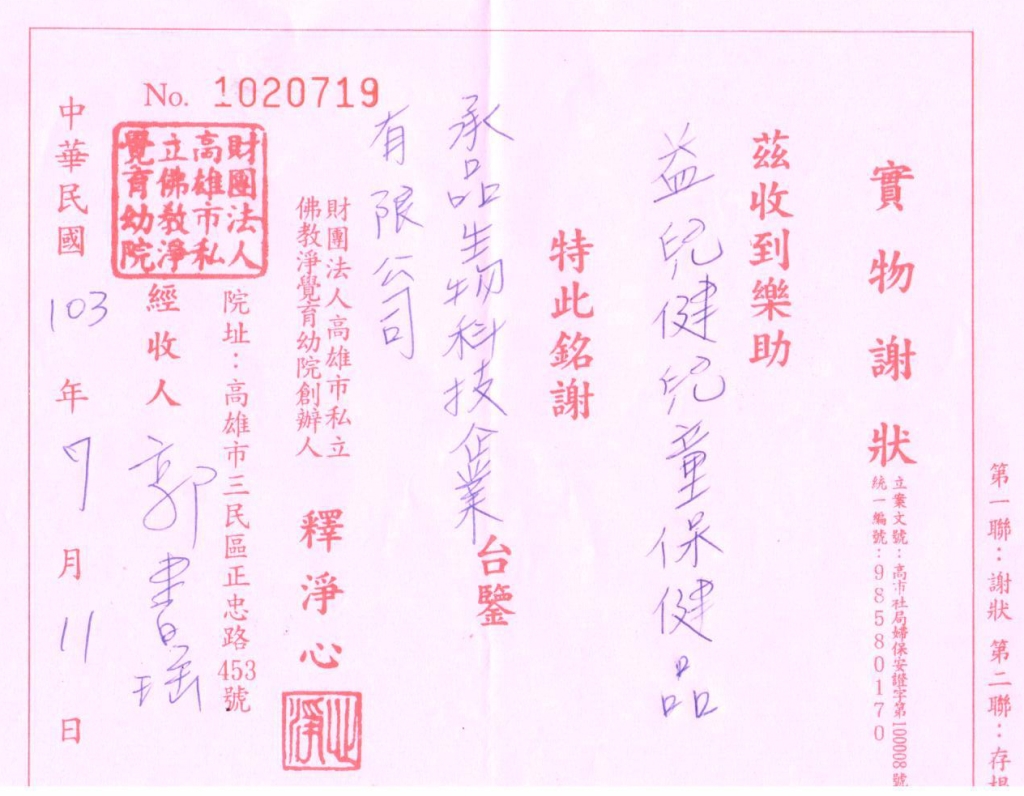 第一聯：謝狀 第二聯：存根
實物謝狀
立案文號：高市社局婦保安證字第100008號
統一編號：98580170
茲收到樂助
益兒健兒童保健品
特此銘謝
承品生物科技企業
有限公司
台鑒
財團法人高雄市私立
佛教淨覺育幼院創辦人
釋淨心
淨心
院址：高雄市三民區正忠路453號
No. 1020719
財團法人
高雄市私
立佛教淨
覺育幼院
經收人 郭書瑤
中華民國103年7月11日